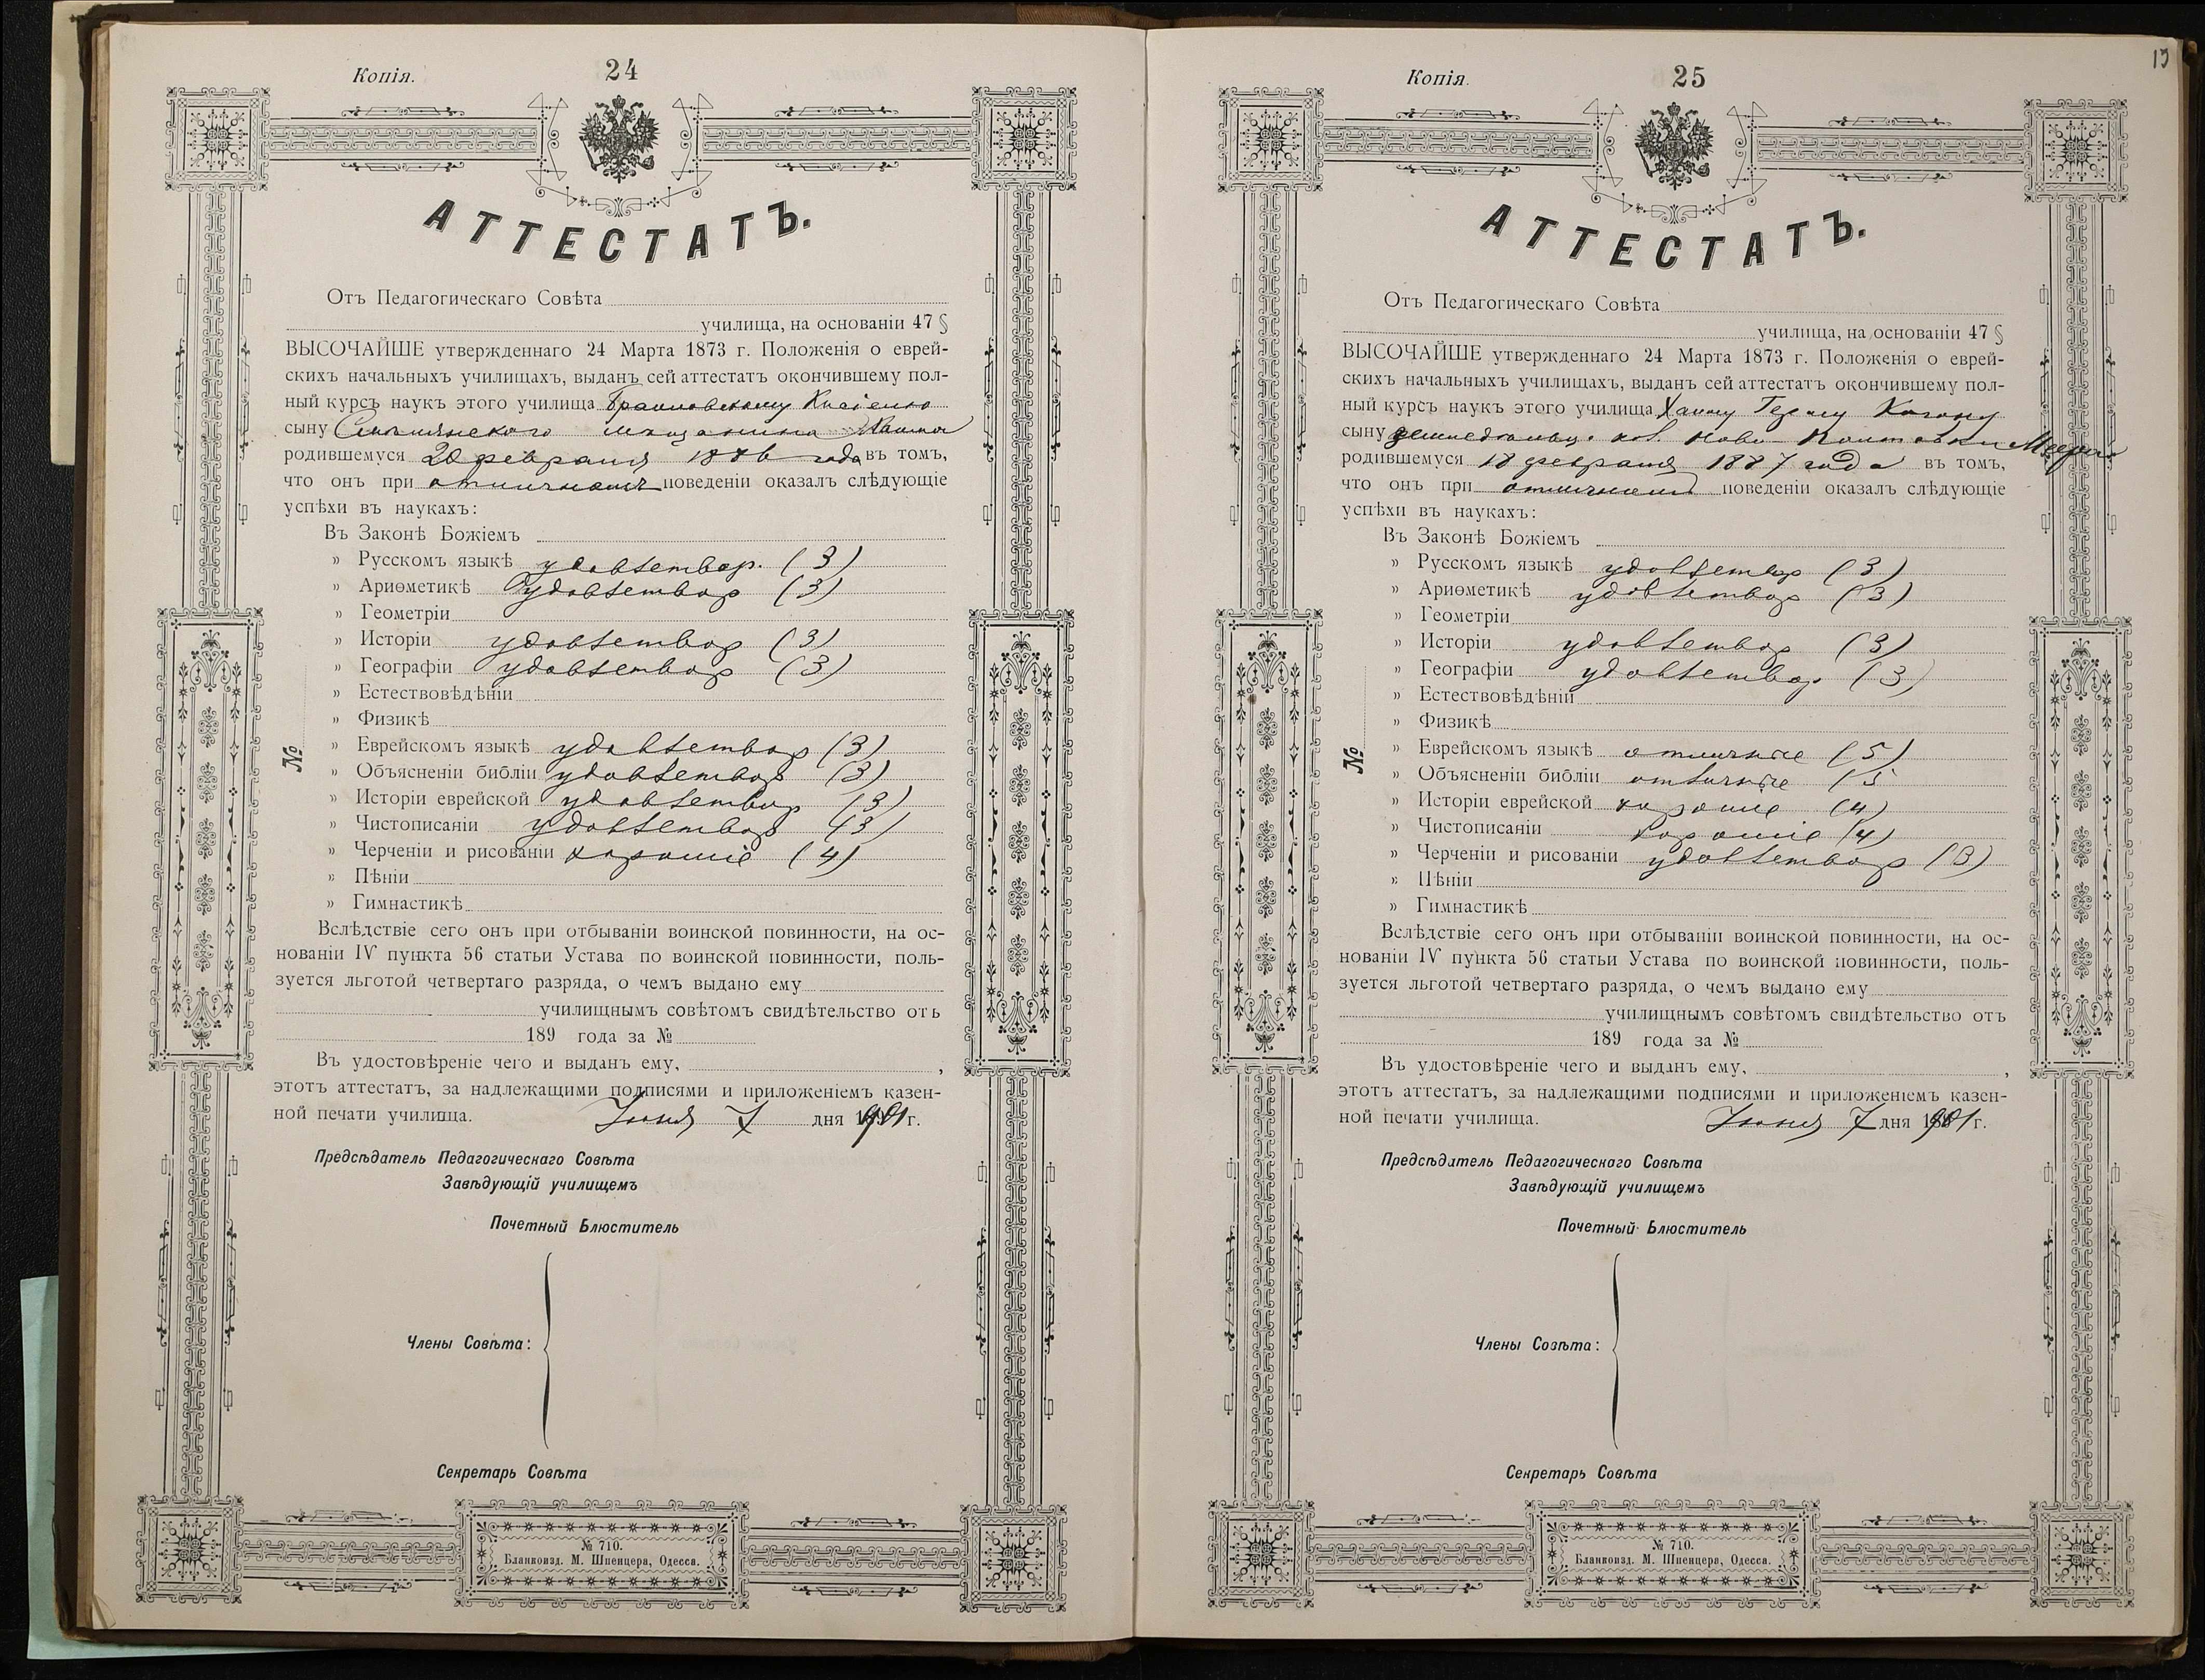 Копія.
24
АТТЕСТАТЪ.
Отъ Педагогическаго Совѣта
училища, на основаніи 47 §
ВЫСОЧАЙШЕ утвержденнаго 24 Марта 1873 г. Положенія о еврей-
скихъ начальныхъ училищахъ, выданъ сей аттестатъ окончившему пол-
ный курсъ наукъ этого училища
сыну мѣщанина
родившемуся 20 февраля 1886 года въ томъ,
что онъ при отличномъ поведеніи оказалъ слѣдующіе
успѣхи въ наукахъ:
Въ Законѣ Божіемъ
» Русскомъ языкѣ удовлетвор. (3)
» Ариѳметикѣ удовлетвор (3)
» Геометріи
» Исторіи удовлетвор (3)
» Географіи удовлетвор (3)
» Естествовѣдѣніи
» Физикѣ
№
» Еврейскомъ языкѣ удовлетвор (3)
» Объясненіи библіи удовлетвор (3)
» Исторіи еврейской удовлетвор (3)
» Чистописаніи удовлетвор (3)
» Черченіи и рисованіи хорошіе (4)
» Пѣніи
» Гимнастикѣ
Вслѣдствіе сего онъ при отбываніи воинской повинности, на ос-
нованіи IV пункта 56 статьи Устава по воинской повинности, поль-
зуется льготой четвертаго разряда, о чемъ выдано ему
училищнымъ совѣтомъ свидѣтельство отъ
189 года за №
Въ удостовѣреніе чего и выданъ ему, ,
этотъ аттестатъ, за надлежащими подписями и приложеніемъ казен-
ной печати училища. Іюня 7 дня 1901 г.
Предсѣдатель Педагогическаго Совѣта
Завѣдующій училищемъ
Почетный Блюститель
Члены Совѣта:
Секретарь Совѣта
№ 710.
Бланкоизд. М. Шпенцера, Одесса.
15
Копія.
25
АТТЕСТАТЪ.
Отъ Педагогическаго Совѣта
училища, на основаніи 47 §
ВЫСОЧАЙШЕ утвержденнаго 24 Марта 1873 г. Положенія о еврей-
скихъ начальныхъ училищахъ, выданъ сей аттестатъ окончившему пол-
ный курсъ наукъ этого училища Хаиму Когану
сыну кол. Ново-Полтавки Меера
родившемуся 18 февраля 1887 года въ томъ,
что онъ при отличномъ поведеніи оказалъ слѣдующіе
успѣхи въ наукахъ:
Въ Законѣ Божіемъ
» Русскомъ языкѣ удовлетвор (3)
» Ариѳметикѣ удовлетвор (3)
» Геометріи
» Исторіи удовлетвор (3)
» Географіи удовлетвор (3)
» Естествовѣдѣніи
» Физикѣ
№
» Еврейскомъ языкѣ отличные (5)
» Объясненіи библіи отличные (5
» Исторіи еврейской хорошіе (4)
» Чистописаніи хорошіе (4)
» Черченіи и рисованіи удовлетвор (3)
» Пѣніи
» Гимнастикѣ
Вслѣдствіе сего онъ при отбываніи воинской повинности, на ос-
нованіи IV пункта 56 статьи Устава по воинской повинности, поль-
зуется льготой четвертаго разряда, о чемъ выдано ему
училищнымъ совѣтомъ свидѣтельство отъ
189 года за №
Въ удостовѣреніе чего и выданъ ему, ,
этотъ аттестатъ, за надлежащими подписями и приложеніемъ казен-
ной печати училища. Іюня 7 дня 1901 г.
Предсѣдатель Педагогическаго Совѣта
Завѣдующій училищемъ
Почетный Блюститель
Члены Совѣта:
Секретарь Совѣта
№ 710.
Бланкоизд. М. Шпенцера, Одесса.